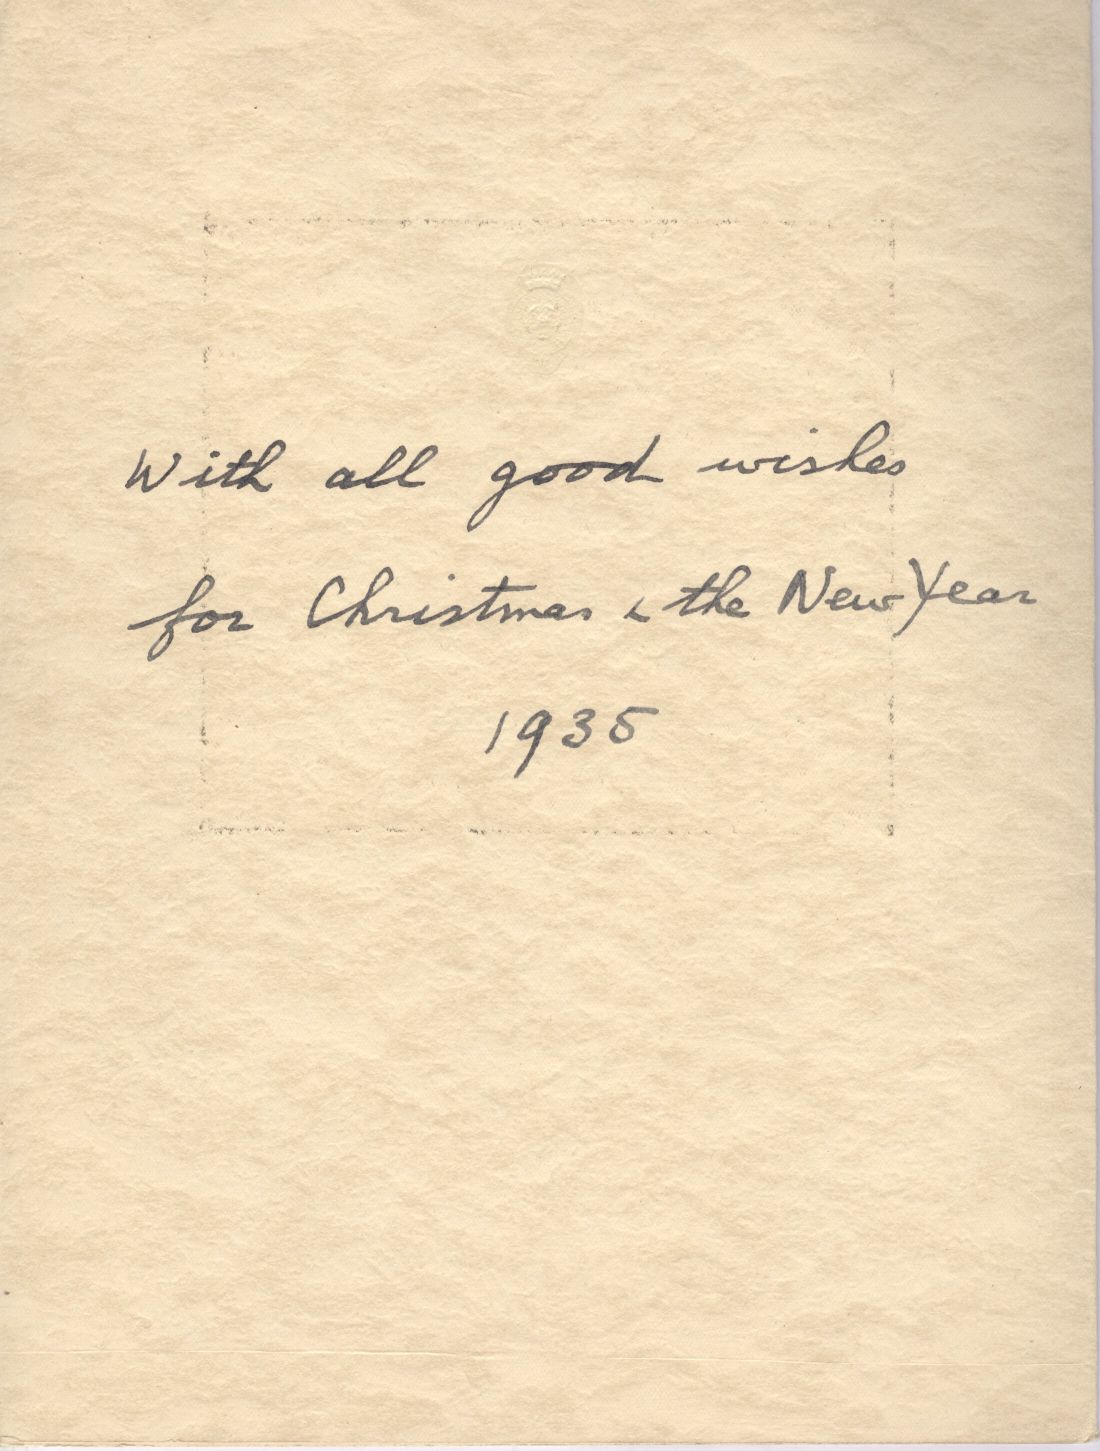 With all good wishes
for Christmas & the New Year
1935